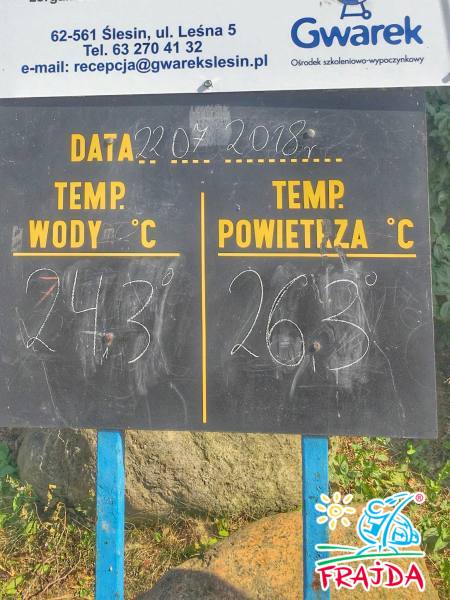 62-561 Ślesin, ul. Leśna 5
Tel. 63 270 41 32
e-mail: recepcja@gwarekslesin.pl
Gwarek
Ośrodek szkoleniowo-wypoczynkowy
DATA 22 07 2018r
TEMP. WODY °C
24,3°
TEMP. POWIETRZA °C
26,3°
FRAJDA
®